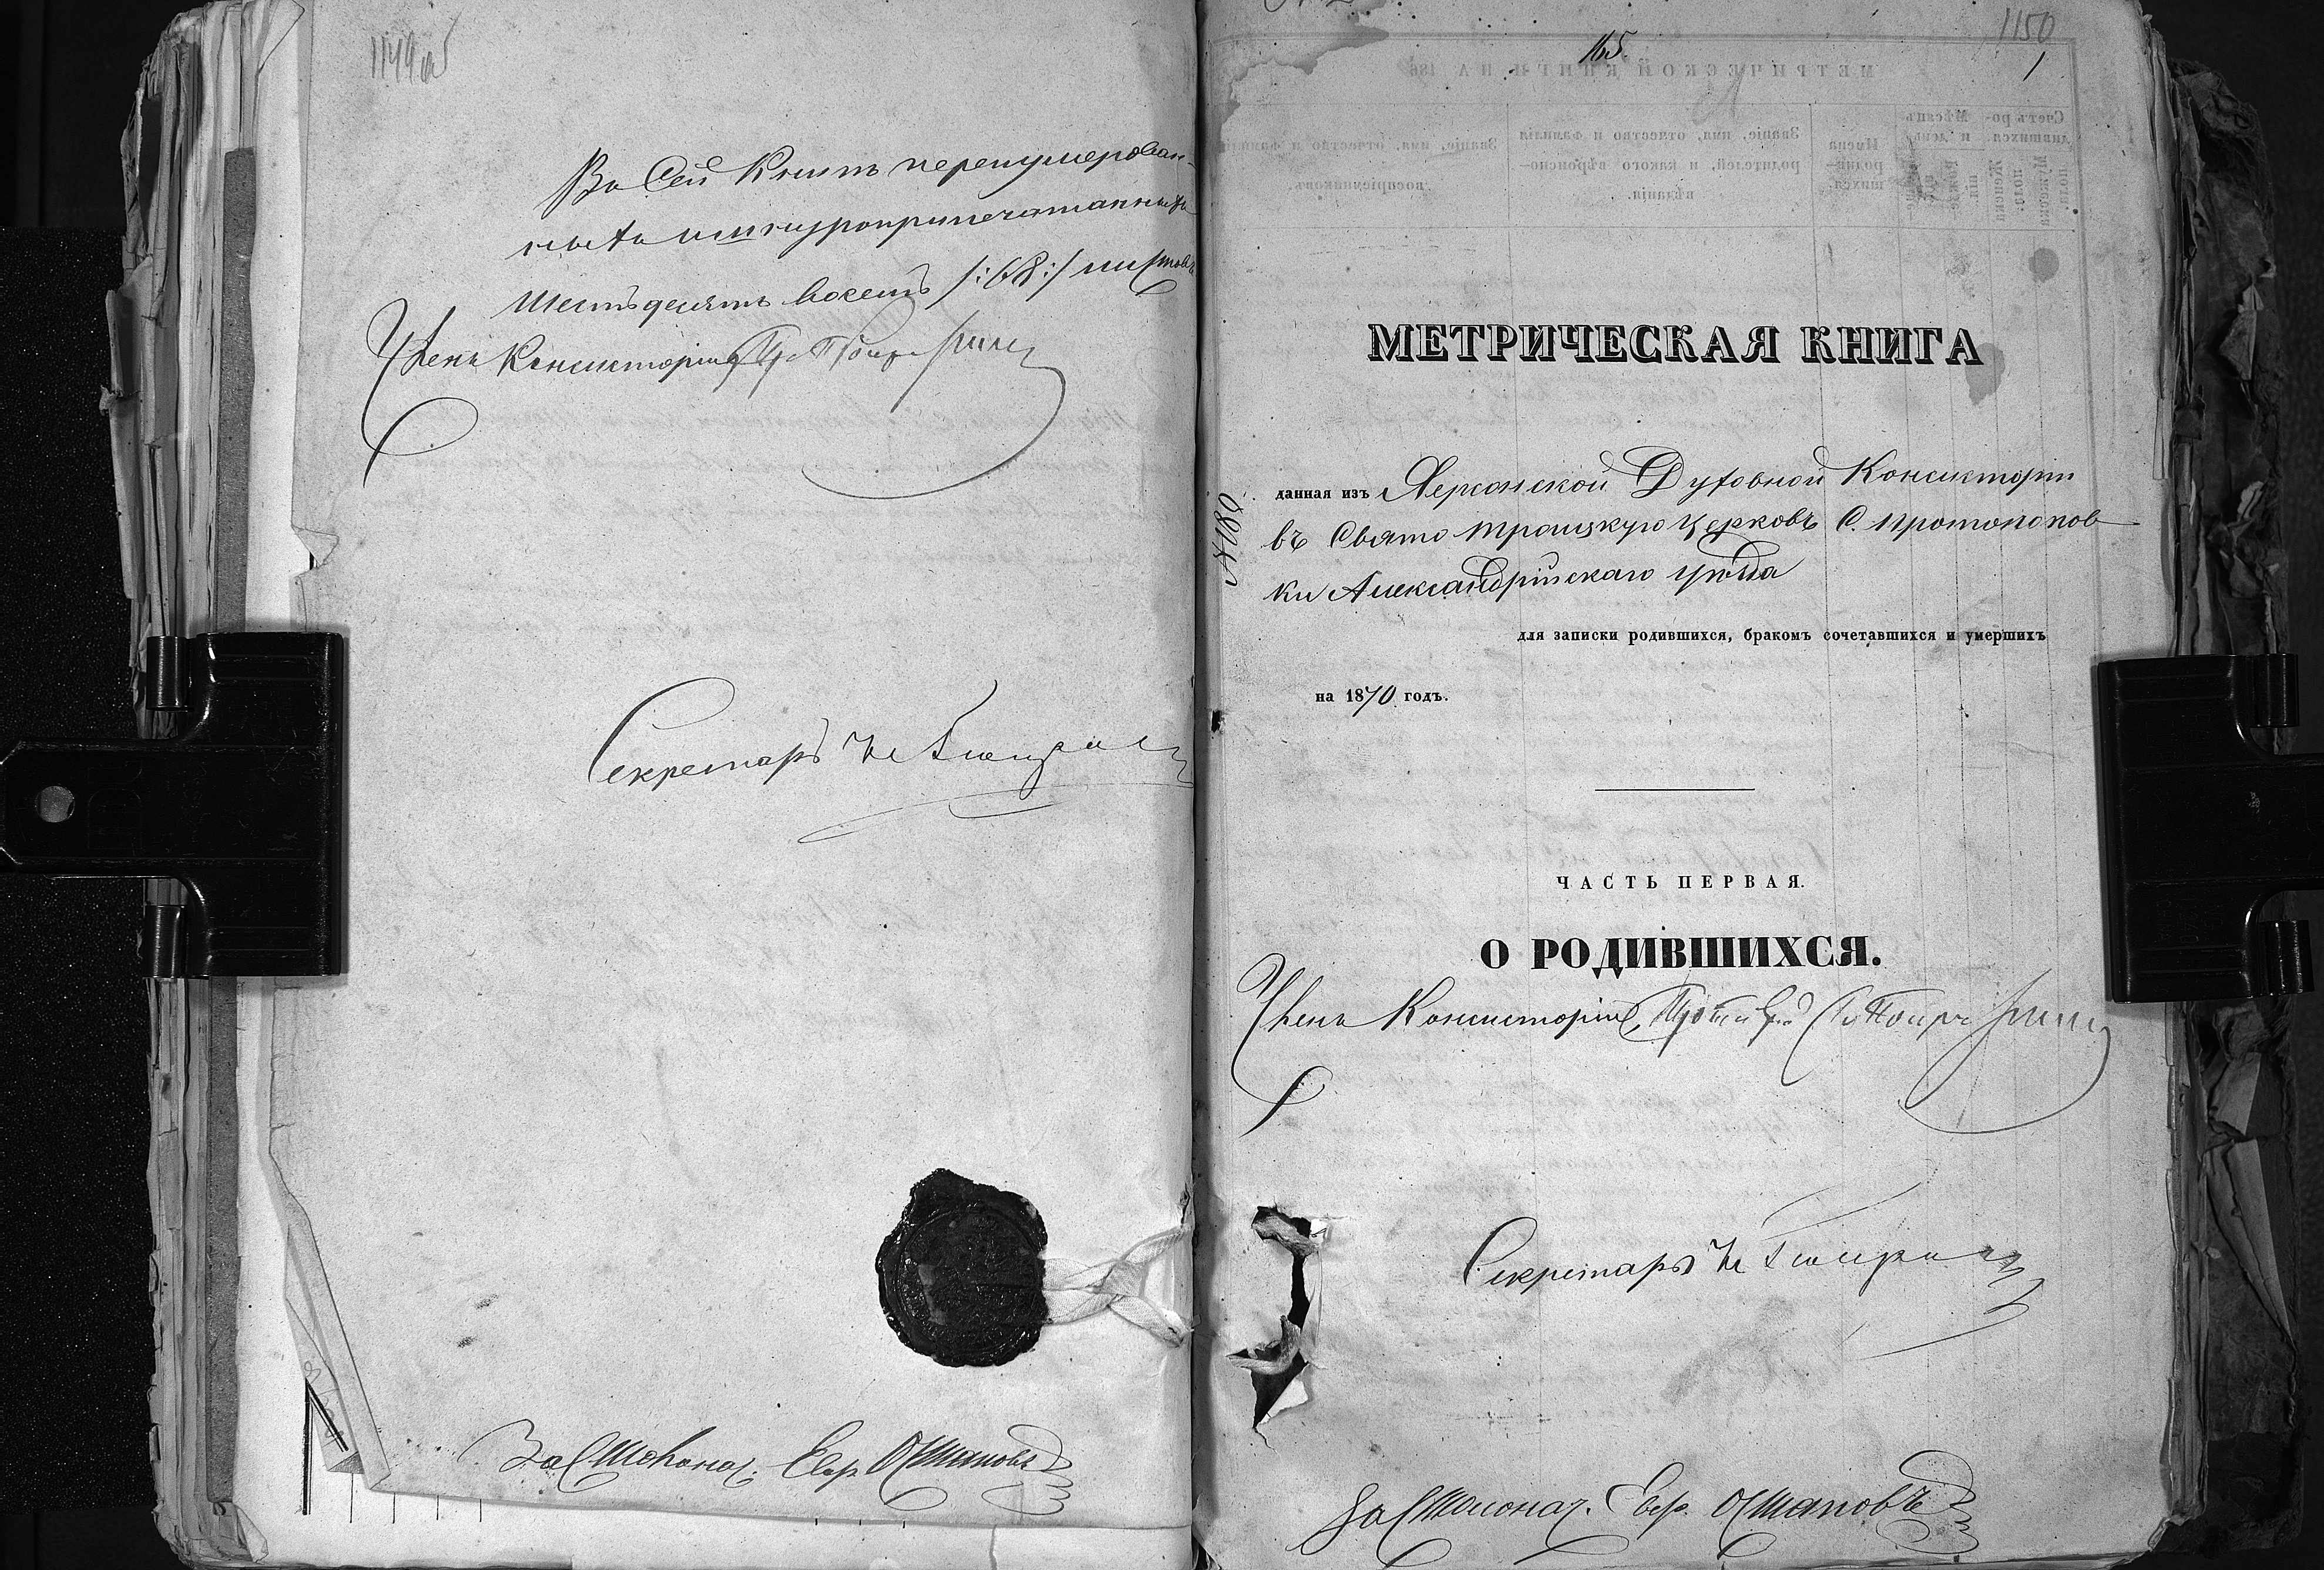 1149 об
Въ Сей Книгѣ перенумерован-
ныхъ и шнуроприпечатанныхъ
шестьдесятъ восемь /:68:/ листовъ
Членъ Консисторіи
Секретарь
За Столонач. Евр. Остаповъ
1150
165.
1
МЕТРИЧЕСКОЙ КНИГИ НА 186
Счетъ ро- дившихся.
Мѣсяцъ и день
Имена родив- шихся.
Званіе, имя, отчество и фамилія родителей, и какого вѣроиспо- вѣданія.
Званіе, имя, отчество и фамилія воспріемниковъ.
МЕТРИЧЕСКАЯ КНИГА
данная изъ Херсонской Духовной Консисторіи
въ Свято Троицкую церковь С. Протопопов
ки Александрійскаго уѣзда
№ 180
для записки родившихся, бракомъ сочетавшихся и умершихъ
на 1870 годъ.
ЧАСТЬ ПЕРВАЯ.
О РОДИВШИХСЯ.
Членъ Консисторіи, Протоіерей
Секретарь
За Столонач. Евр. Остаповъ